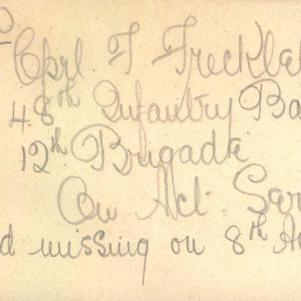 Cprl. F Freckle
48th Infantry Ba
12th Brigade
On Act. Ser
d missing on 8th A